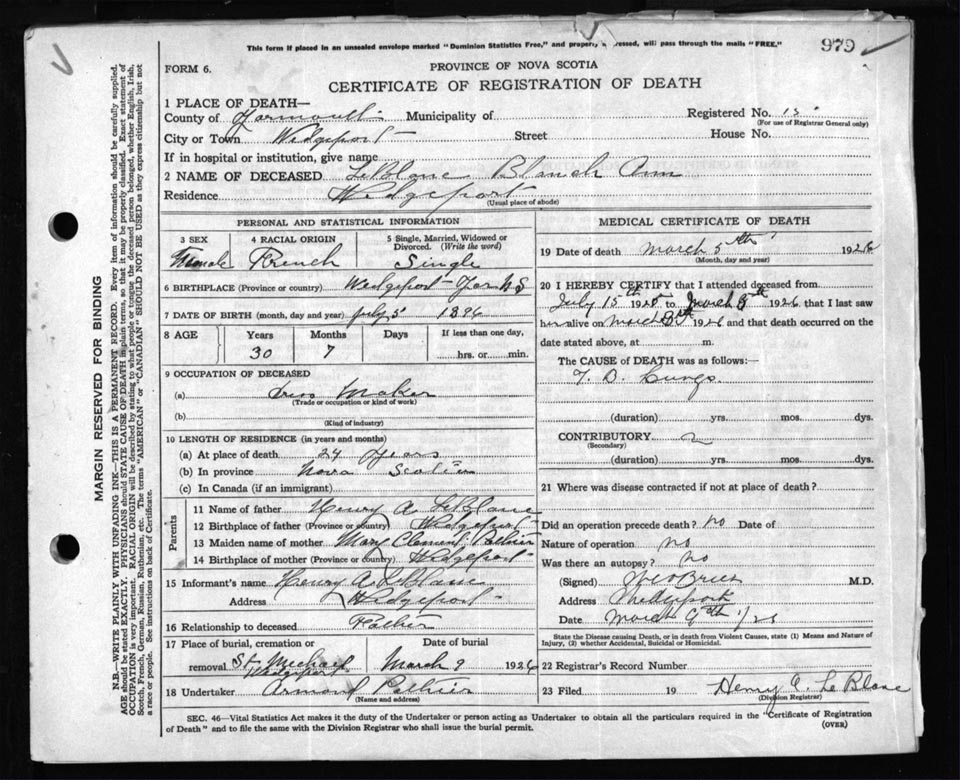 This form if placed in an unsealed envelope marked "Dominion Statistics Free," and properly addressed, will pass through the mails "FREE."
979
FORM 6.
PROVINCE OF NOVA SCOTIA
CERTIFICATE OF REGISTRATION OF DEATH
1 PLACE OF DEATH—
County of Yarmouth Municipality of Registered No. 15
(For use of Registrar General only)
City or Town Wedgeport Street House No.
If in hospital or institution, give name
2 NAME OF DECEASED LeBlanc Blanch Ann
Residence Wedgeport
(Usual place of abode)
MARGIN RESERVED FOR BINDING
N.B.—WRITE PLAINLY WITH UNFADING INK—THIS IS A PERMANENT RECORD. Every item of information should be carefully supplied.
AGE should be stated EXACTLY. PHYSICIANS should STATE CAUSE OF DEATH in plain terms, so that it may be properly classified. Exact statement of
OCCUPATION is very important. RACIAL ORIGIN will be described by stating to what people or tongue the deceased person belonged, whether English, Irish,
Scotch, French, German, Russian, Ruthenian, etc. The terms "AMERICAN" or "CANADIAN" SHOULD NOT BE USED as they express citizenship but not
a race or people. See instructions on back of Certificate.
PERSONAL AND STATISTICAL INFORMATION
3 SEX
Female
4 RACIAL ORIGIN
French
5 Single, Married, Widowed or
Divorced. (Write the word)
Single
6 BIRTHPLACE (Province or country) Wedgeport Yar NS
7 DATE OF BIRTH (month, day and year) July 5 1896
8 AGE Years Months Days If less than one day,
30 7 hrs. or min.
9 OCCUPATION OF DECEASED
(a) Dress Maker
(Trade or occupation or kind of work)
(b)
(Kind of industry)
10 LENGTH OF RESIDENCE (in years and months)
(a) At place of death 24 years
(b) In province Nova Scotia
(c) In Canada (if an immigrant)
Parents
11 Name of father Henry A. LeBlanc
12 Birthplace of father (Province or country) Wedgeport
13 Maiden name of mother Mary Clement Pothier
14 Birthplace of mother (Province or country) Wedgeport
15 Informant's name Henry A LeBlanc
Address Wedgeport
16 Relationship to deceased Father
17 Place of burial, cremation or Date of burial
removal St. Michael March 9 1926
Wedgeport
18 Undertaker Armand Pothier
(Name and address)
MEDICAL CERTIFICATE OF DEATH
19 Date of death March 5th 1926
(Month, day and year)
20 I HEREBY CERTIFY that I attended deceased from
July 15th 1925 to March 8th 1926 that I last saw
her alive on March 8th 1926 and that death occurred on the
date stated above, at m.
The CAUSE of DEATH was as follows:—
T. B. Lungs.
(duration) yrs. mos. dys.
CONTRIBUTORY
(Secondary)
(duration) yrs. mos. dys.
21 Where was disease contracted if not at place of death?
Did an operation precede death? no Date of
Nature of operation no
Was there an autopsy? no
(Signed) M.D.
Address Wedgeport
Date March 9th
State the Disease causing Death, or in death from Violent Causes, state (1) Means and Nature of
Injury, (2) whether Accidental, Suicidal or Homicidal.
22 Registrar's Record Number
23 Filed 19 Henry C. LeBlanc
(Division Registrar)
SEC. 46—Vital Statistics Act makes it the duty of the Undertaker or person acting as Undertaker to obtain all the particulars required in the "Certificate of Registration
of Death" and to file the same with the Division Registrar who shall issue the burial permit.
(OVER)